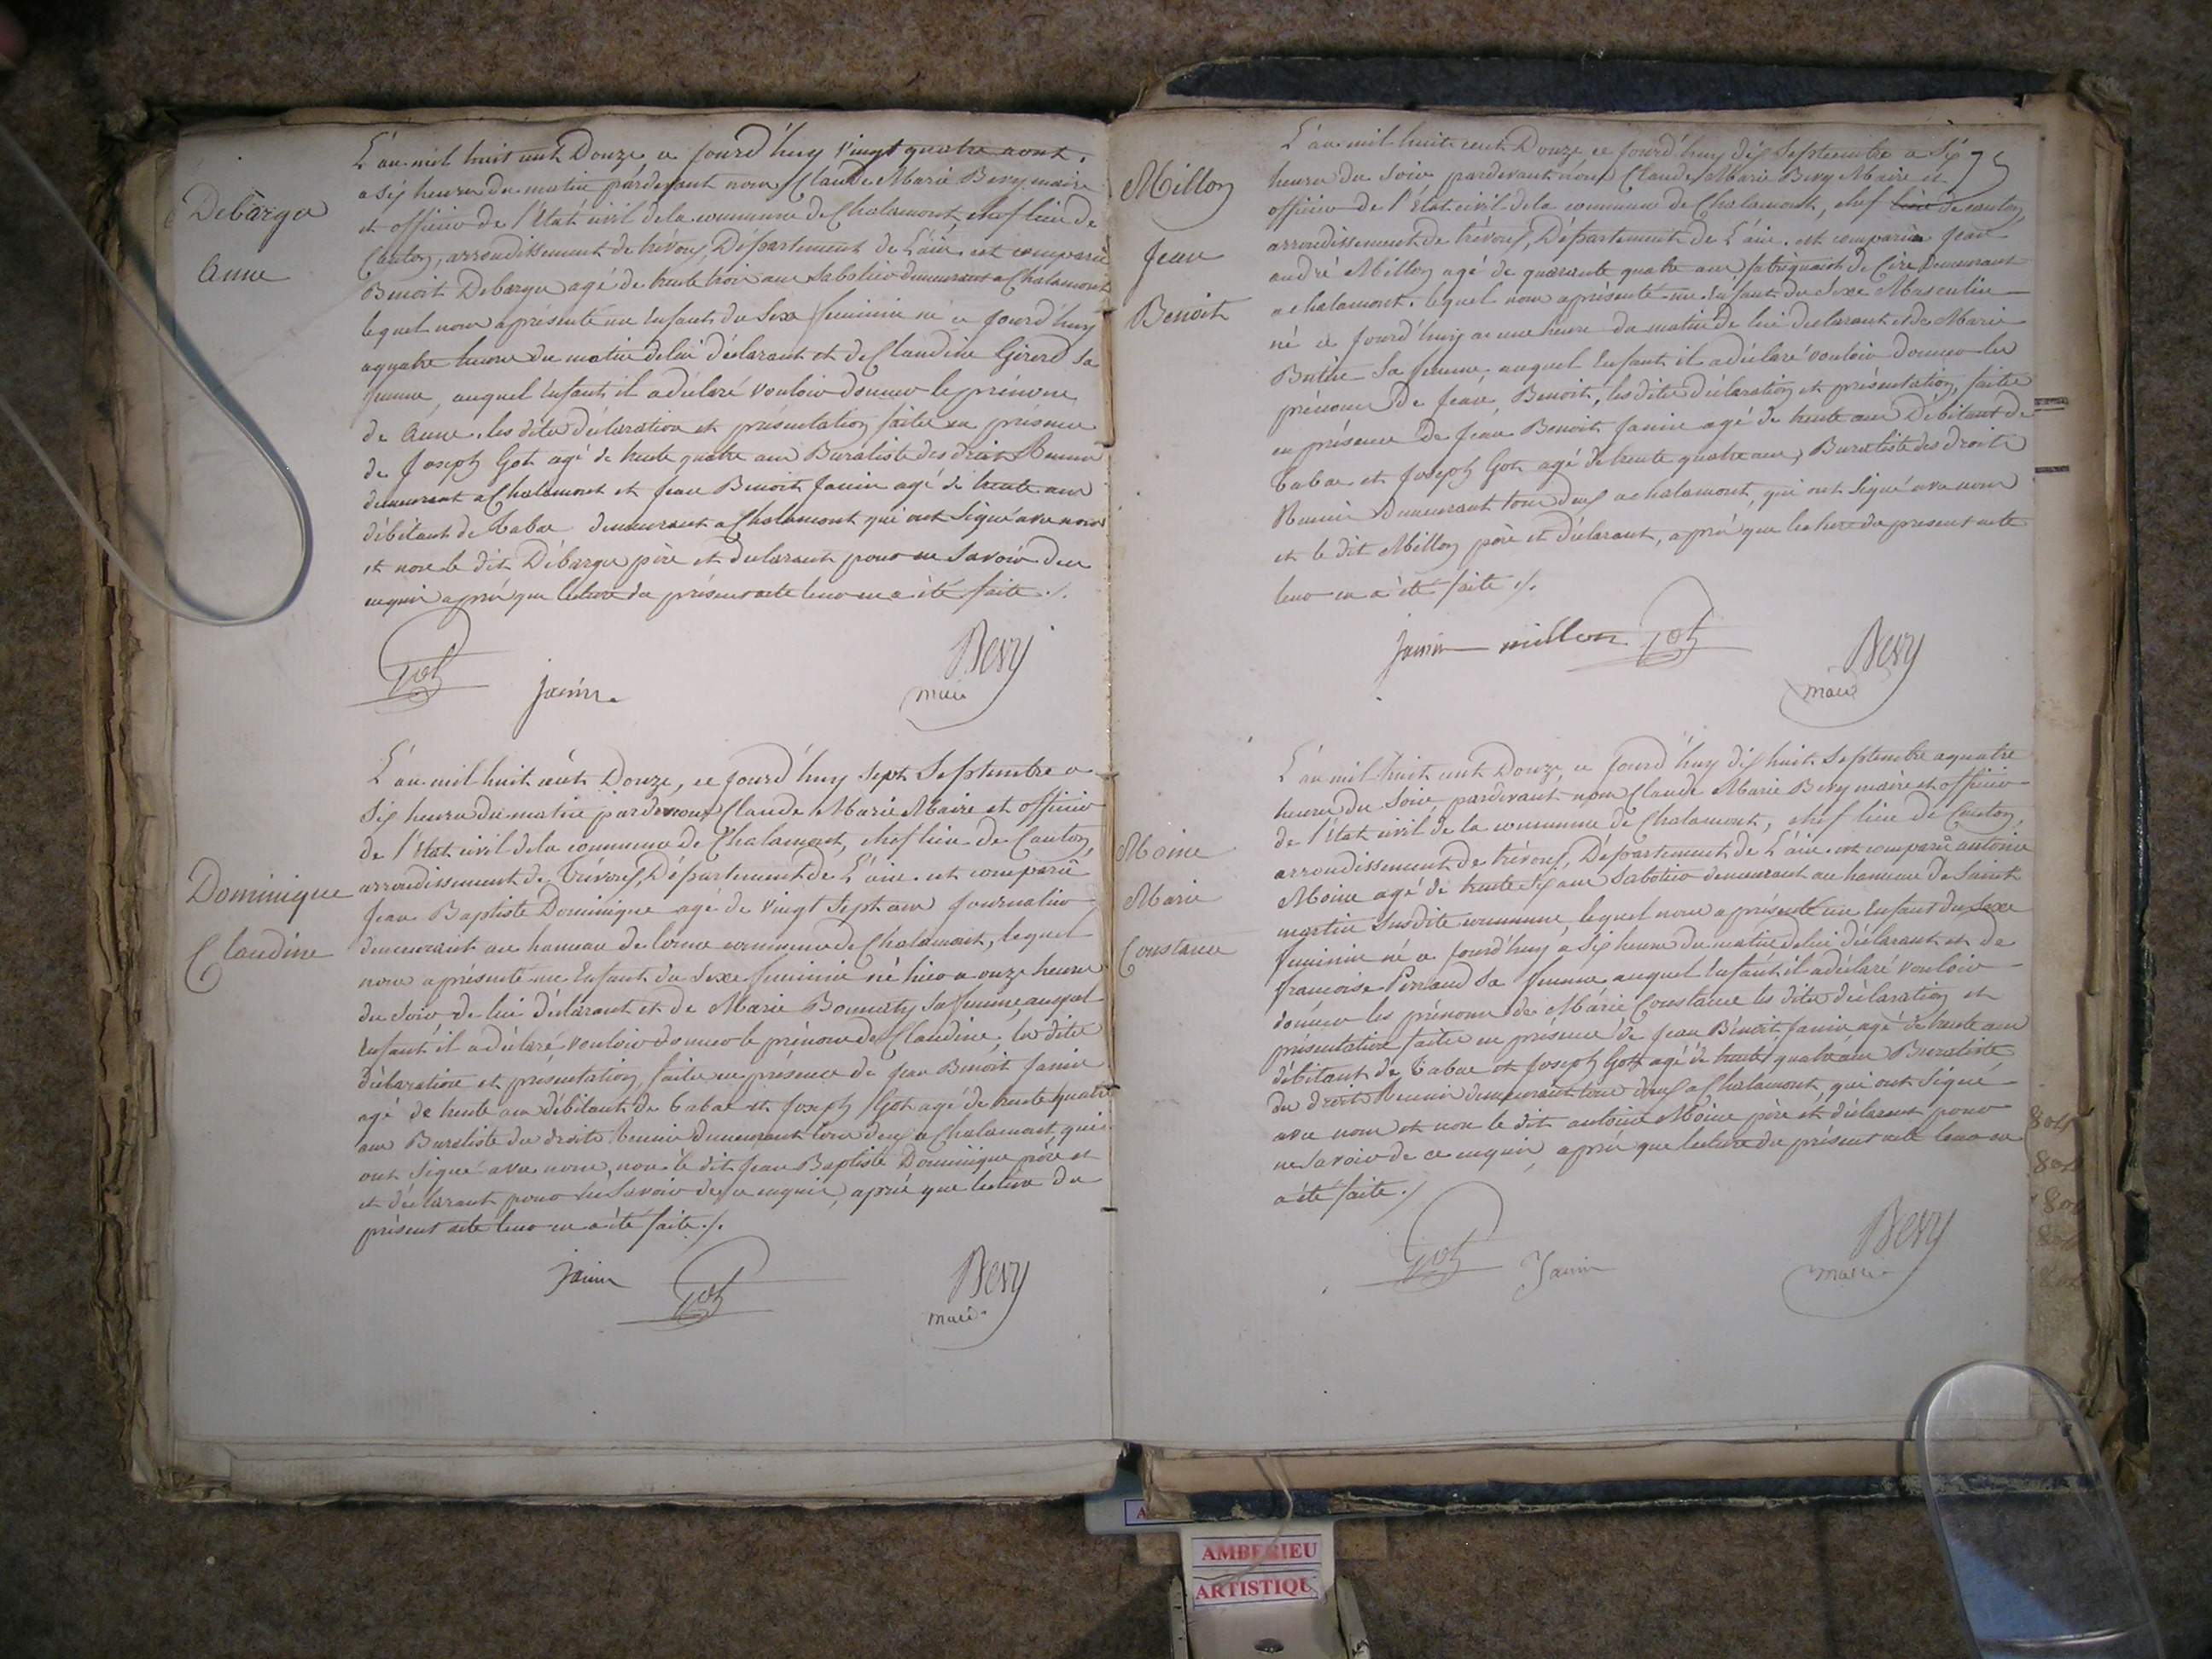 Debarge
Anne
L'an mil huit cent Douze, ce jourd'huy vingt quatre aout,
a six heures du matin pardevant nous Claude Marie Bevy maire
et officier de l'Etat civil de la commune de Chalamont, chef lieu de
Canton, arrondissement de trévoux, Département de L'ain. est comparu
Benoit Debarge agé de trente trois ans Sabotier demeurant a Chalamont
lequel nous a presenté un Enfant du Sexe feminin né ce jourd'huy
a quatre heures du matin de lui déclarant et de Claudine Girerd sa
femme, auquel Enfant il a déclaré vouloir donner le prénom
de Anne. les dites déclaration et présentation faites en présence
de Joseph Got agé de trente quatre ans Buraliste des droits Reunis
demeurant a Chalamont et Jean Benoit Janin agé de trente ans
débitant de Tabac demeurant a Chalamont qui ont Signé avec nous
et non le dit Débarge père et declarant pour ne Savoir de ce
enquis après que lecture du présent acte leur en a été faite ./.
Got
janin
Bevy
maire
Dominique
Claudine
L'an mil huit cent Douze, ce jourd'huy Sept Septembre a
Six heures du matin pardevant Claude Marie Maire et officier
de l'Etat civil de la commune de Chalamont, chef lieu de Canton,
arrondissement de Trévoux, Département de L'ain. est comparu
Jean Baptiste Dominique agé de vingt Sept ans Journalier
demeurant au hameau de commune de Chalamont, lequel
nous a présenté un Enfant du Sexe feminin né hier a onze heures
du Soir de lui déclarant et de Marie Sa femme auquel
Enfant il a déclaré vouloir donner le prénom de Claudine, les dites
déclaration et présentation faites en présence de Jean Benoit Janin
agé de trente ans débitant de tabac et Joseph Got agé de trente quatre
ans Buraliste des droits Reunis demeurant tous deux a Chalamont, qui
ont Signé avec nous, non le dit Jean Baptiste Dominique père et
et déclarant pour ne Savoir de ce enquis, après que lecture du
présent acte leur en a été faite ./.
janin
Got
Bevy
maire
75
Millon
Jean
Benoit
L'an mil huit cent Douze ce jourd'huy dix Septembre a Six
heures du Soir pardevant nous Claude Marie Bevy Maire et
officier de l'Etat civil de la commune de Chalamont, chef lieu de canton,
arrondissement de trévoux, Département de L'ain. est comparu Jean
andré Millon agé de quarante quatre ans fabriquant de Cire Demeurant
a chalamont. lequel nous a présenté un Enfant du Sexe Masculin
né ce jourd'huy a une heure du matin de lui declarant et de Marie
Sa femme, auquel Enfant il a déclaré vouloir donner les
prénoms de Jean, Benoit, les dites declaration et présentation, faites
en présence de Jean Benoit Janin agé de trente ans Débitant de
tabac et Joseph Got agé de trente quatre ans, Buraliste des droits
Reunis Demeurant tous deux a chalamont, qui ont Signé avec nous
et le dit Millon père et déclarant, après que lecture du present acte
leur en a été faite ./.
janin
millon
Got
Bevy
maire
Moine
Marie
Constance
L'an mil huit cent Douze, ce jourd'huy dix huit Septembre a quatre
heures du Soir, pardevant nous Claude Marie Bevy maire et officier
de l'Etat civil de la commune de Chalamont, chef lieu de Canton,
arrondissement de trévoux, Département de L'ain. est comparu antoine
Moine agé de trente Six ans Sabotier demeurant au hameau de Saint
martin Susdite commune, lequel nous a présenté un Enfant du Sexe
feminin né ce jourd'huy a Six heures du matin de lui déclarant et de
françoise Perraud Sa femme, auquel Enfant il a déclaré vouloir
donner les prénoms de Marie Constance les dites déclaration et
présentation faites en présence de Jean Bénoit Janin agé de trente ans
débitant de Tabac et Joseph Got agé de trente quatre ans Buraliste
des droits Reunis demeurant tous deux a Chalamont, qui ont Signé
avec nous et non le dit antoine Moine père et déclarant pour
ne Savoir de ce enquis, après que lecture du présent acte leur en
a été faite ./
Got
Janin
Bevy
maire
AMBERIEU
ARTISTIQU